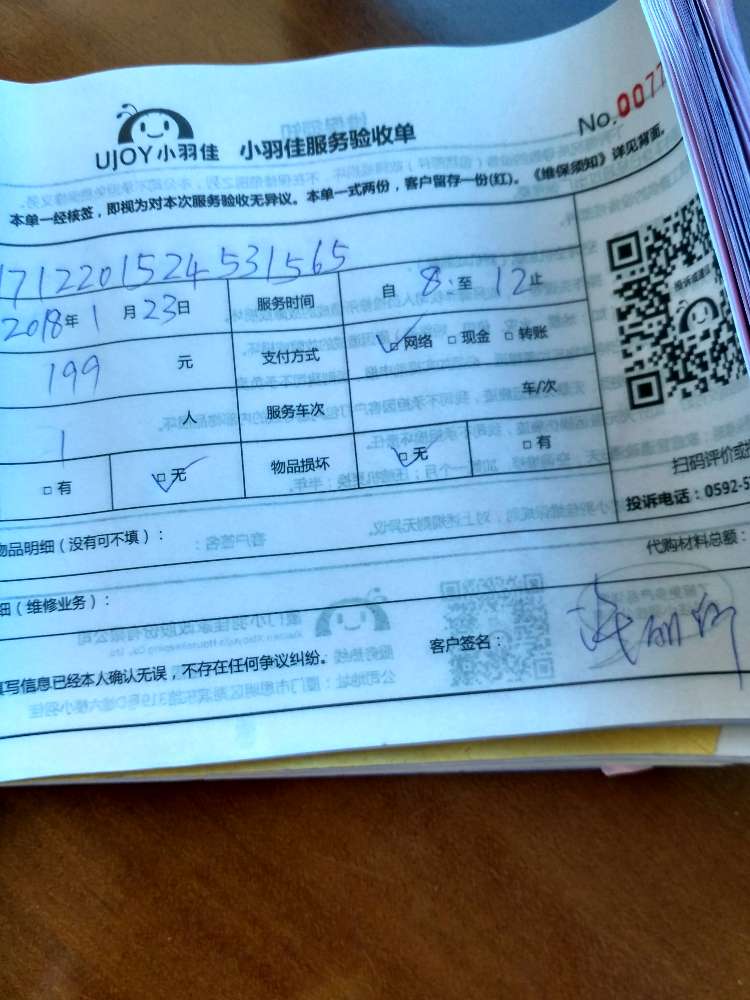 UJOY小羽佳 小羽佳服务验收单 No.0077
本单一经核签，即视为对本次服务验收无异议。本单一式两份，客户留存一份(红)。《维保须知》详见背面。
1712201524531565
2018年1月23日 服务时间 自8:至12止
199 元 支付方式 □网络 □现金 □转账
1 人 服务车次 车/次
□有 □无 物品损坏 □无 □有
扫码评价或投
投诉电话：0592-5
物品明细（没有可不填）： 代购材料总额：
细（维修业务）：
填写信息已经本人确认无误，不存在任何争议纠纷。 客户签名：